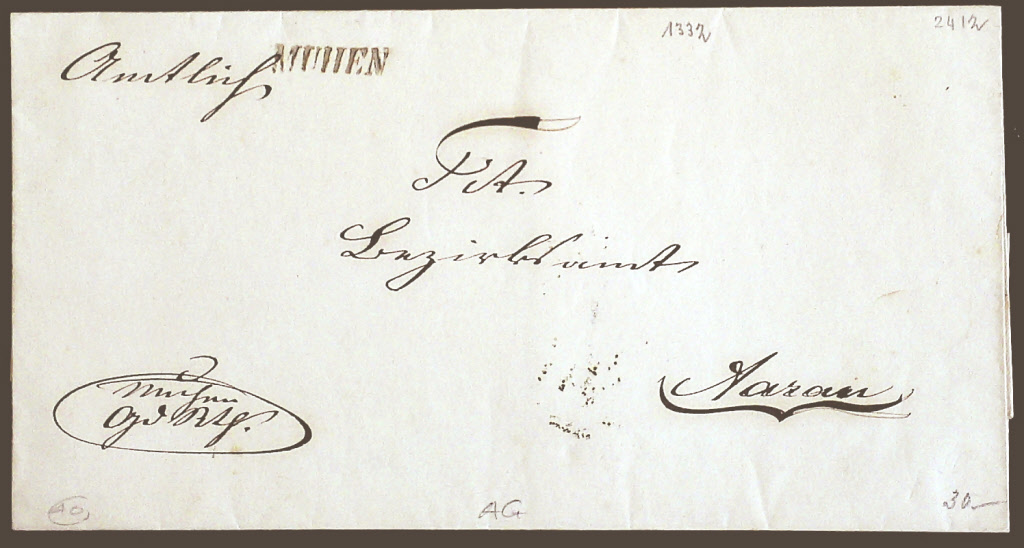 1332
2412
Amtlich MUHEN
Tit.
Bezirksamt
Aarau
Muhen
Gd Rth.
AG
AG
30.-